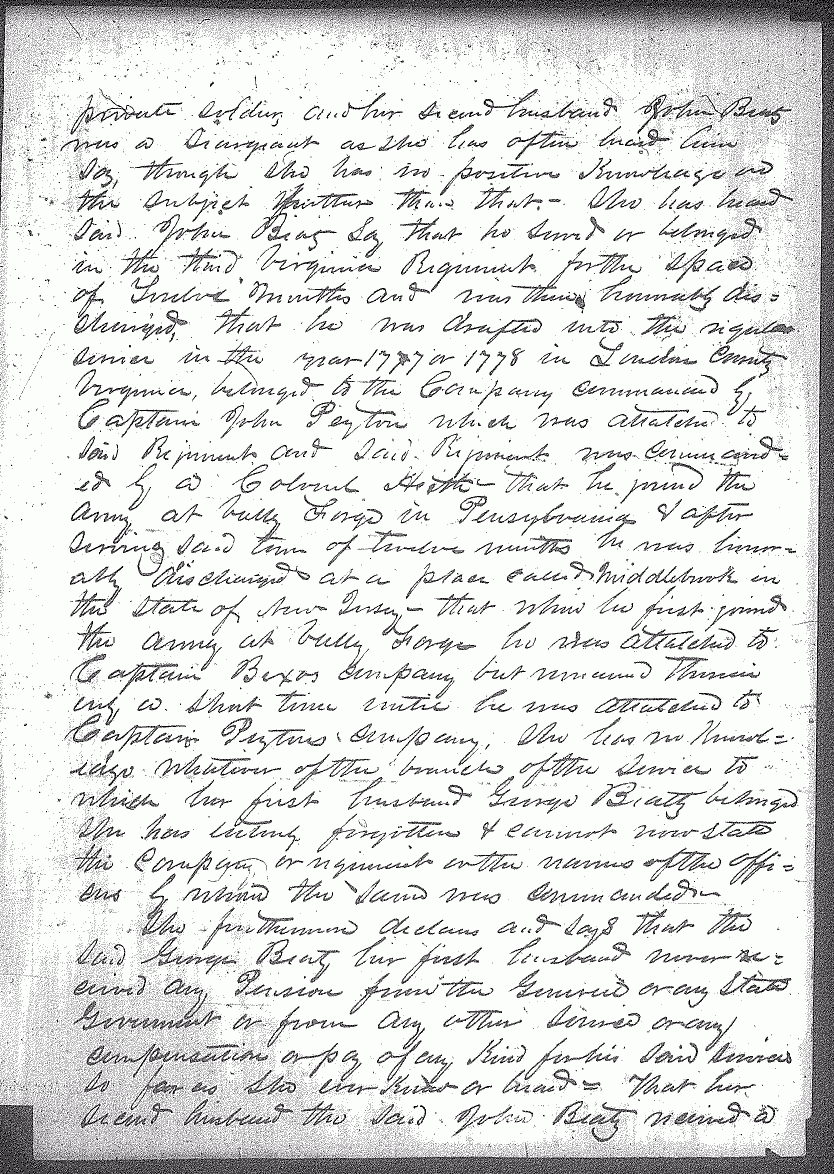 private soldier, and her second husband John Beaty
was a Seargeant as she has often heard him
say, though she has no positive Knowledge on
the subject further than that.- She has heard
said John Beaty Say that he served or belonged
in the third Virginia Regiment for the space
of Twelve Months and was then honorably dis=
charged, that he was drafted into the regular
service in the year 1777 or 1778 in Loudon County
Virginia, belonged to the Company commanded by
Captain John Peyton which was attatched to
said Regiment and said Regiment was command=
ed by a Colonel Heath- that he joined the
Army at Vally Forge in Pensylvania & after
serving said term of twelve months he was honor=
ably discharged at a place called Middlebrook in
the State of New Jersey- that when he first joined
the Army at Vally Forge he was attatched to
Captain company but remained therein
only a short time until he was attatched to
Captain Peytons company, She has no Knowl=
edge whatever of the branch of the service to
which her first husband George Beatty belonged
She has entirely forgotten & cannot now state
the Company or regiment or the names of the offi=
cers by whom the same was commanded-
She furthermore declares and says that the
said George Beaty her first husband never re=
ceived any Pension from the General or any State
Government or from any other source or any
compensation or pay of any Kind for his said services
so far as she ever Knew or heard= That her
second husband the said John Beaty received a